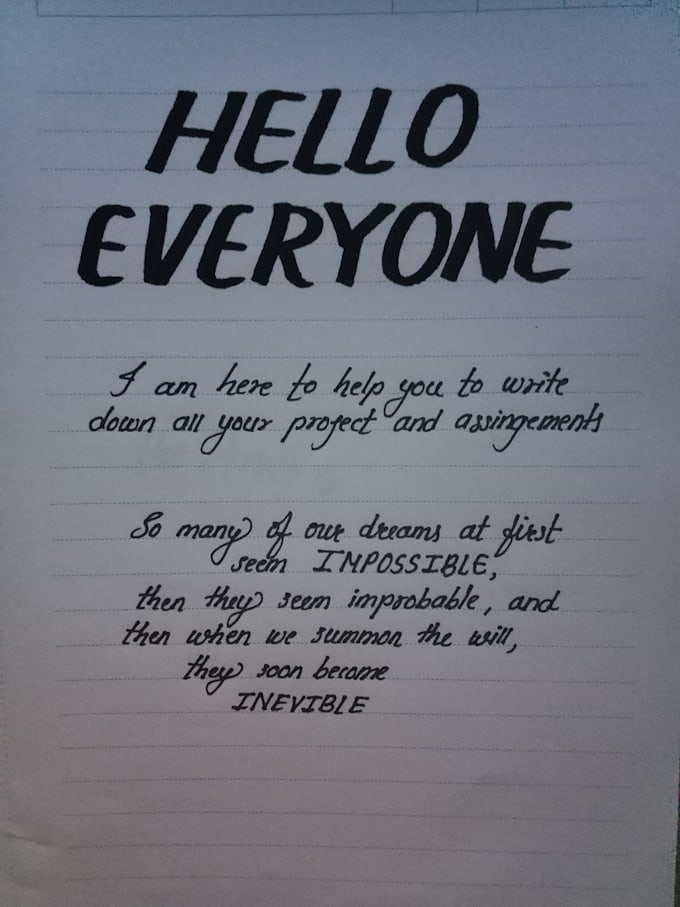 HELLO
EVERYONE
I am here to help you to write
down all your project and assingements
So many of our dreams at first
seem IMPOSSIBLE,
then they seem improbable, and
then when we summon the will,
they soon become
INEVIBLE